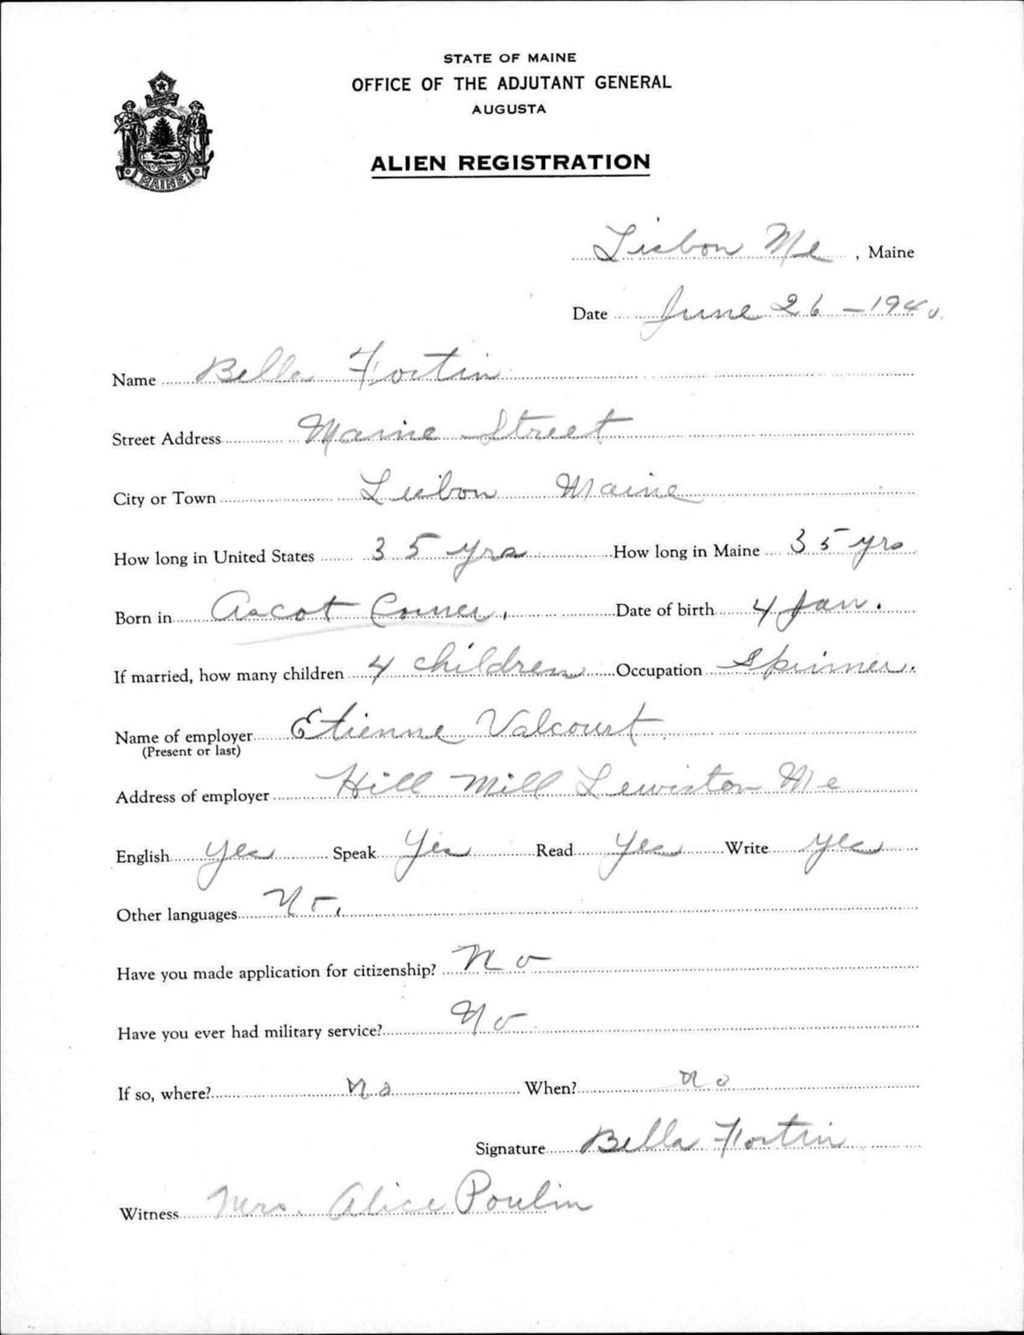 STATE OF MAINE
OFFICE OF THE ADJUTANT GENERAL
AUGUSTA
ALIEN REGISTRATION
MAINE
Lisbon Me, Maine
Date June 26 - 1940
Name Bella Fortin
Street Address Maine Street
City or Town Lisbon Maine
How long in United States 35 yrs How long in Maine 35 yrs
Born in Ascot Corner. Date of birth 4 Jan.
If married, how many children 4 children Occupation Spinner.
Name of employer Etienne Valcourt
(Present or last)
Address of employer Hill Mill Lewiston Me
English Yes Speak Yes Read Yes Write Yes
Other languages No.
Have you made application for citizenship? No
Have you ever had military service? No
If so, where? no When? no
Signature Bella Fortin
Witness Mrs. Alice Poulin